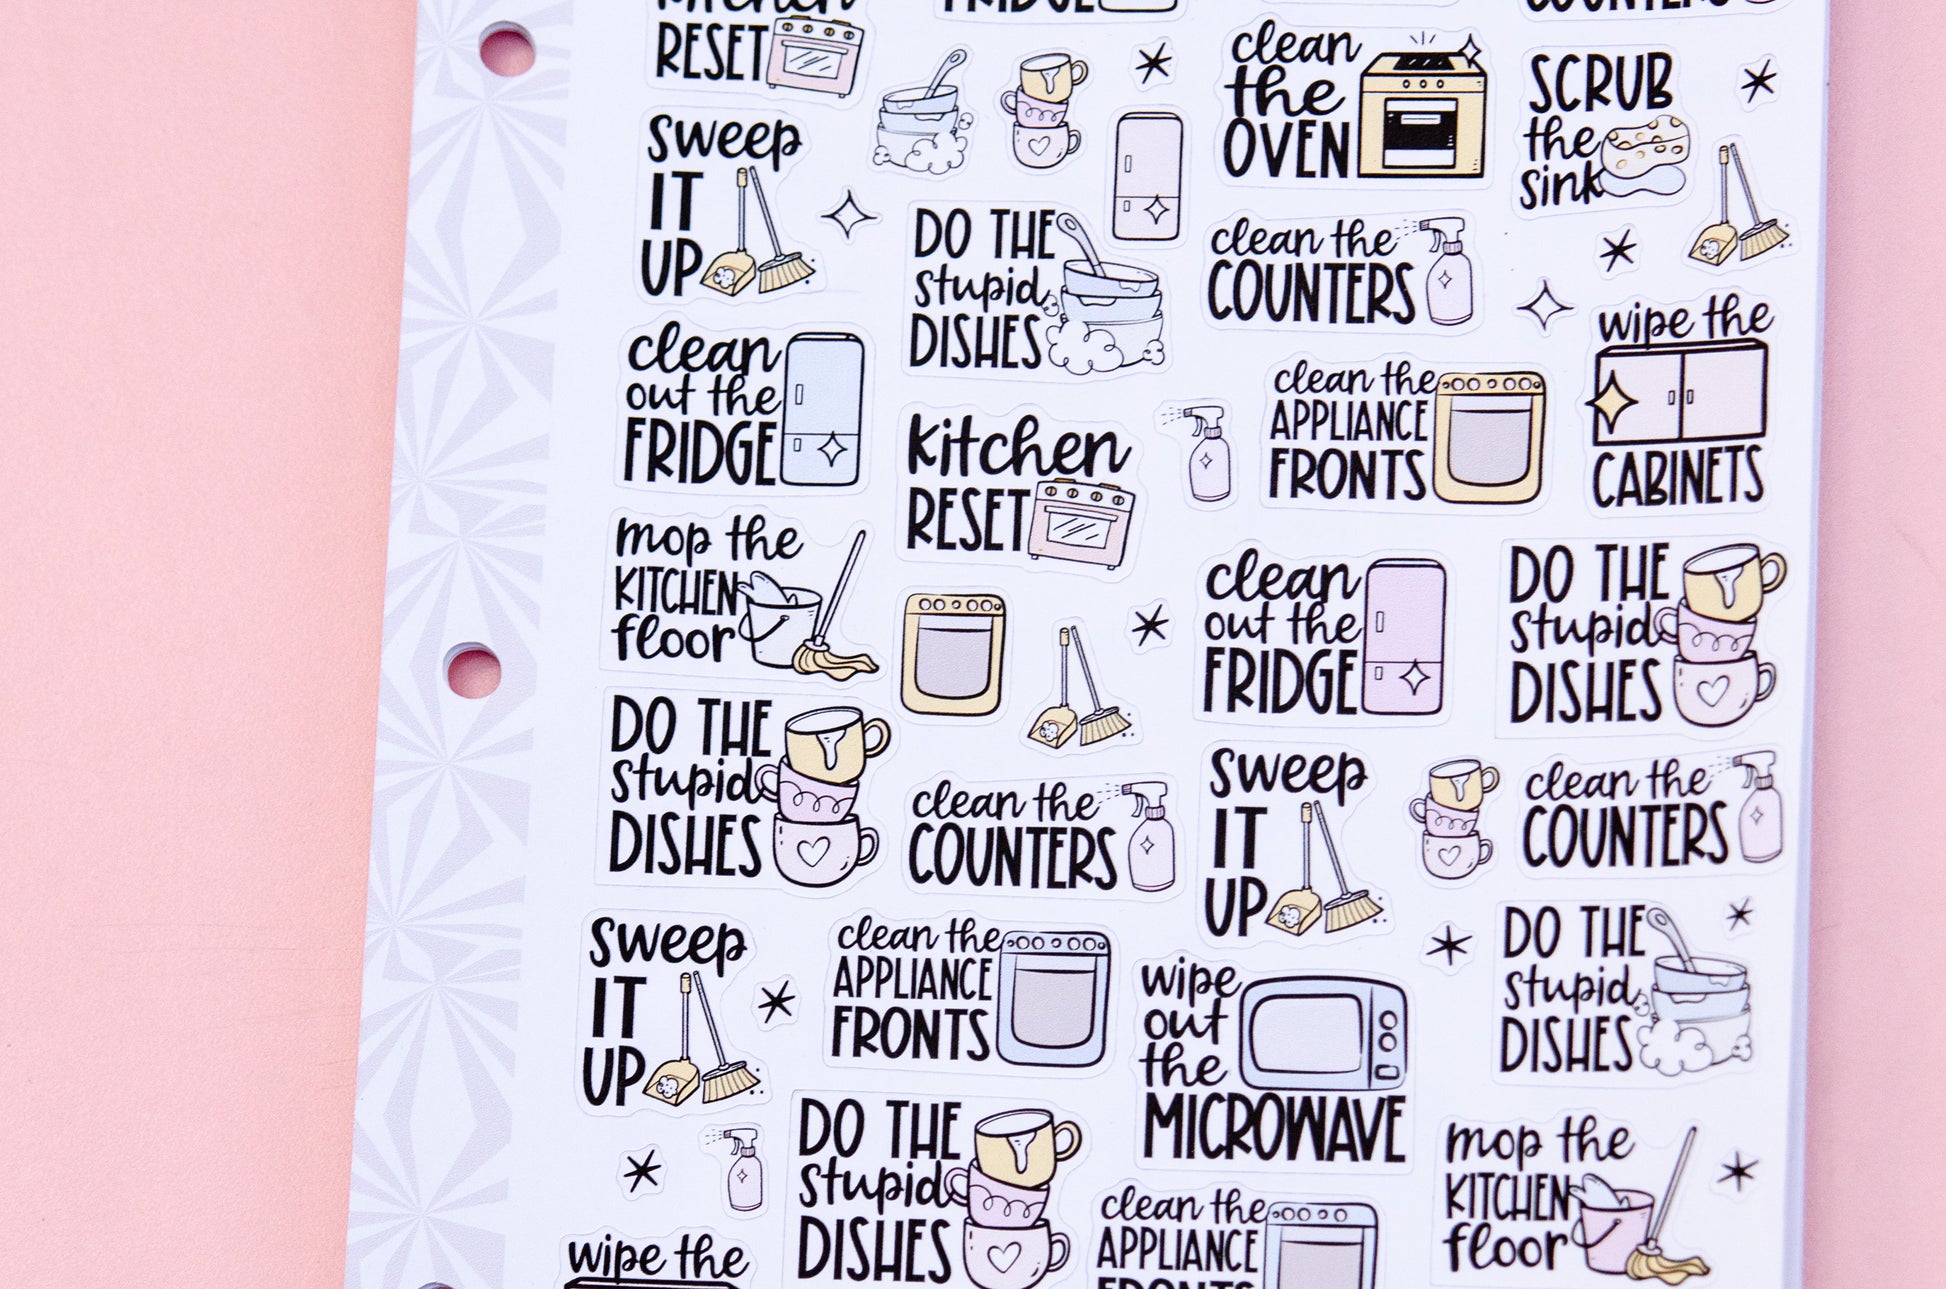 Kitchen
RESET
FRIDGE
COUNTERS
clean
the
OVEN
SCRUB
the
sink
sweep
IT
UP
DO THE
stupid
DISHES
clean the
COUNTERS
wipe the
CABINETS
clean
out the
FRIDGE
Kitchen
RESET
clean the
APPLIANCE
FRONTS
mop the
KITCHEN
floor
clean
out the
FRIDGE
DO THE
stupid
DISHES
DO THE
stupid
DISHES
clean the
COUNTERS
sweep
IT
UP
clean the
COUNTERS
sweep
IT
UP
clean the
APPLIANCE
FRONTS
wipe
out
the
MICROWAVE
DO THE
stupid
DISHES
DO THE
stupid
DISHES
mop the
KITCHEN
floor
wipe the
clean the
APPLIANCE
FRONTS